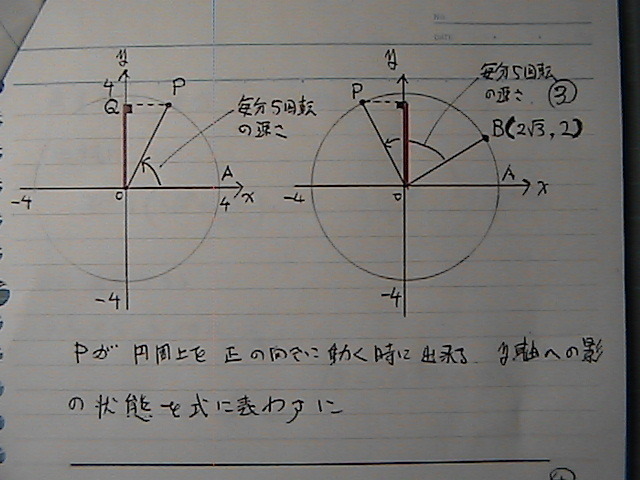 NO.
DATE
y
4
Q
P
毎分5回転
の速さ
A
O
-4
4
x
-4
y
P
毎分5回転
の速さ
③
B(2√3,2)
A
-4
O
x
-4
Pが 円周上を 正の向きに動く時に出来る y軸への影
の状態を式に表わすに